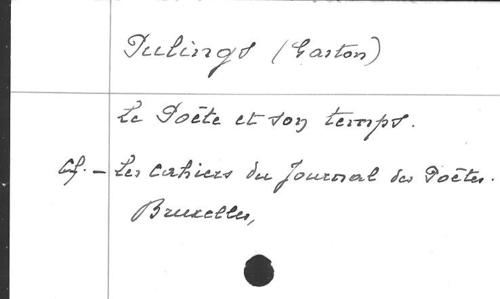 Pulings (Gaston)
Le Poète et son temps.
Cf. - Les Cahiers du Journal des Poètes.
Bruxelles,